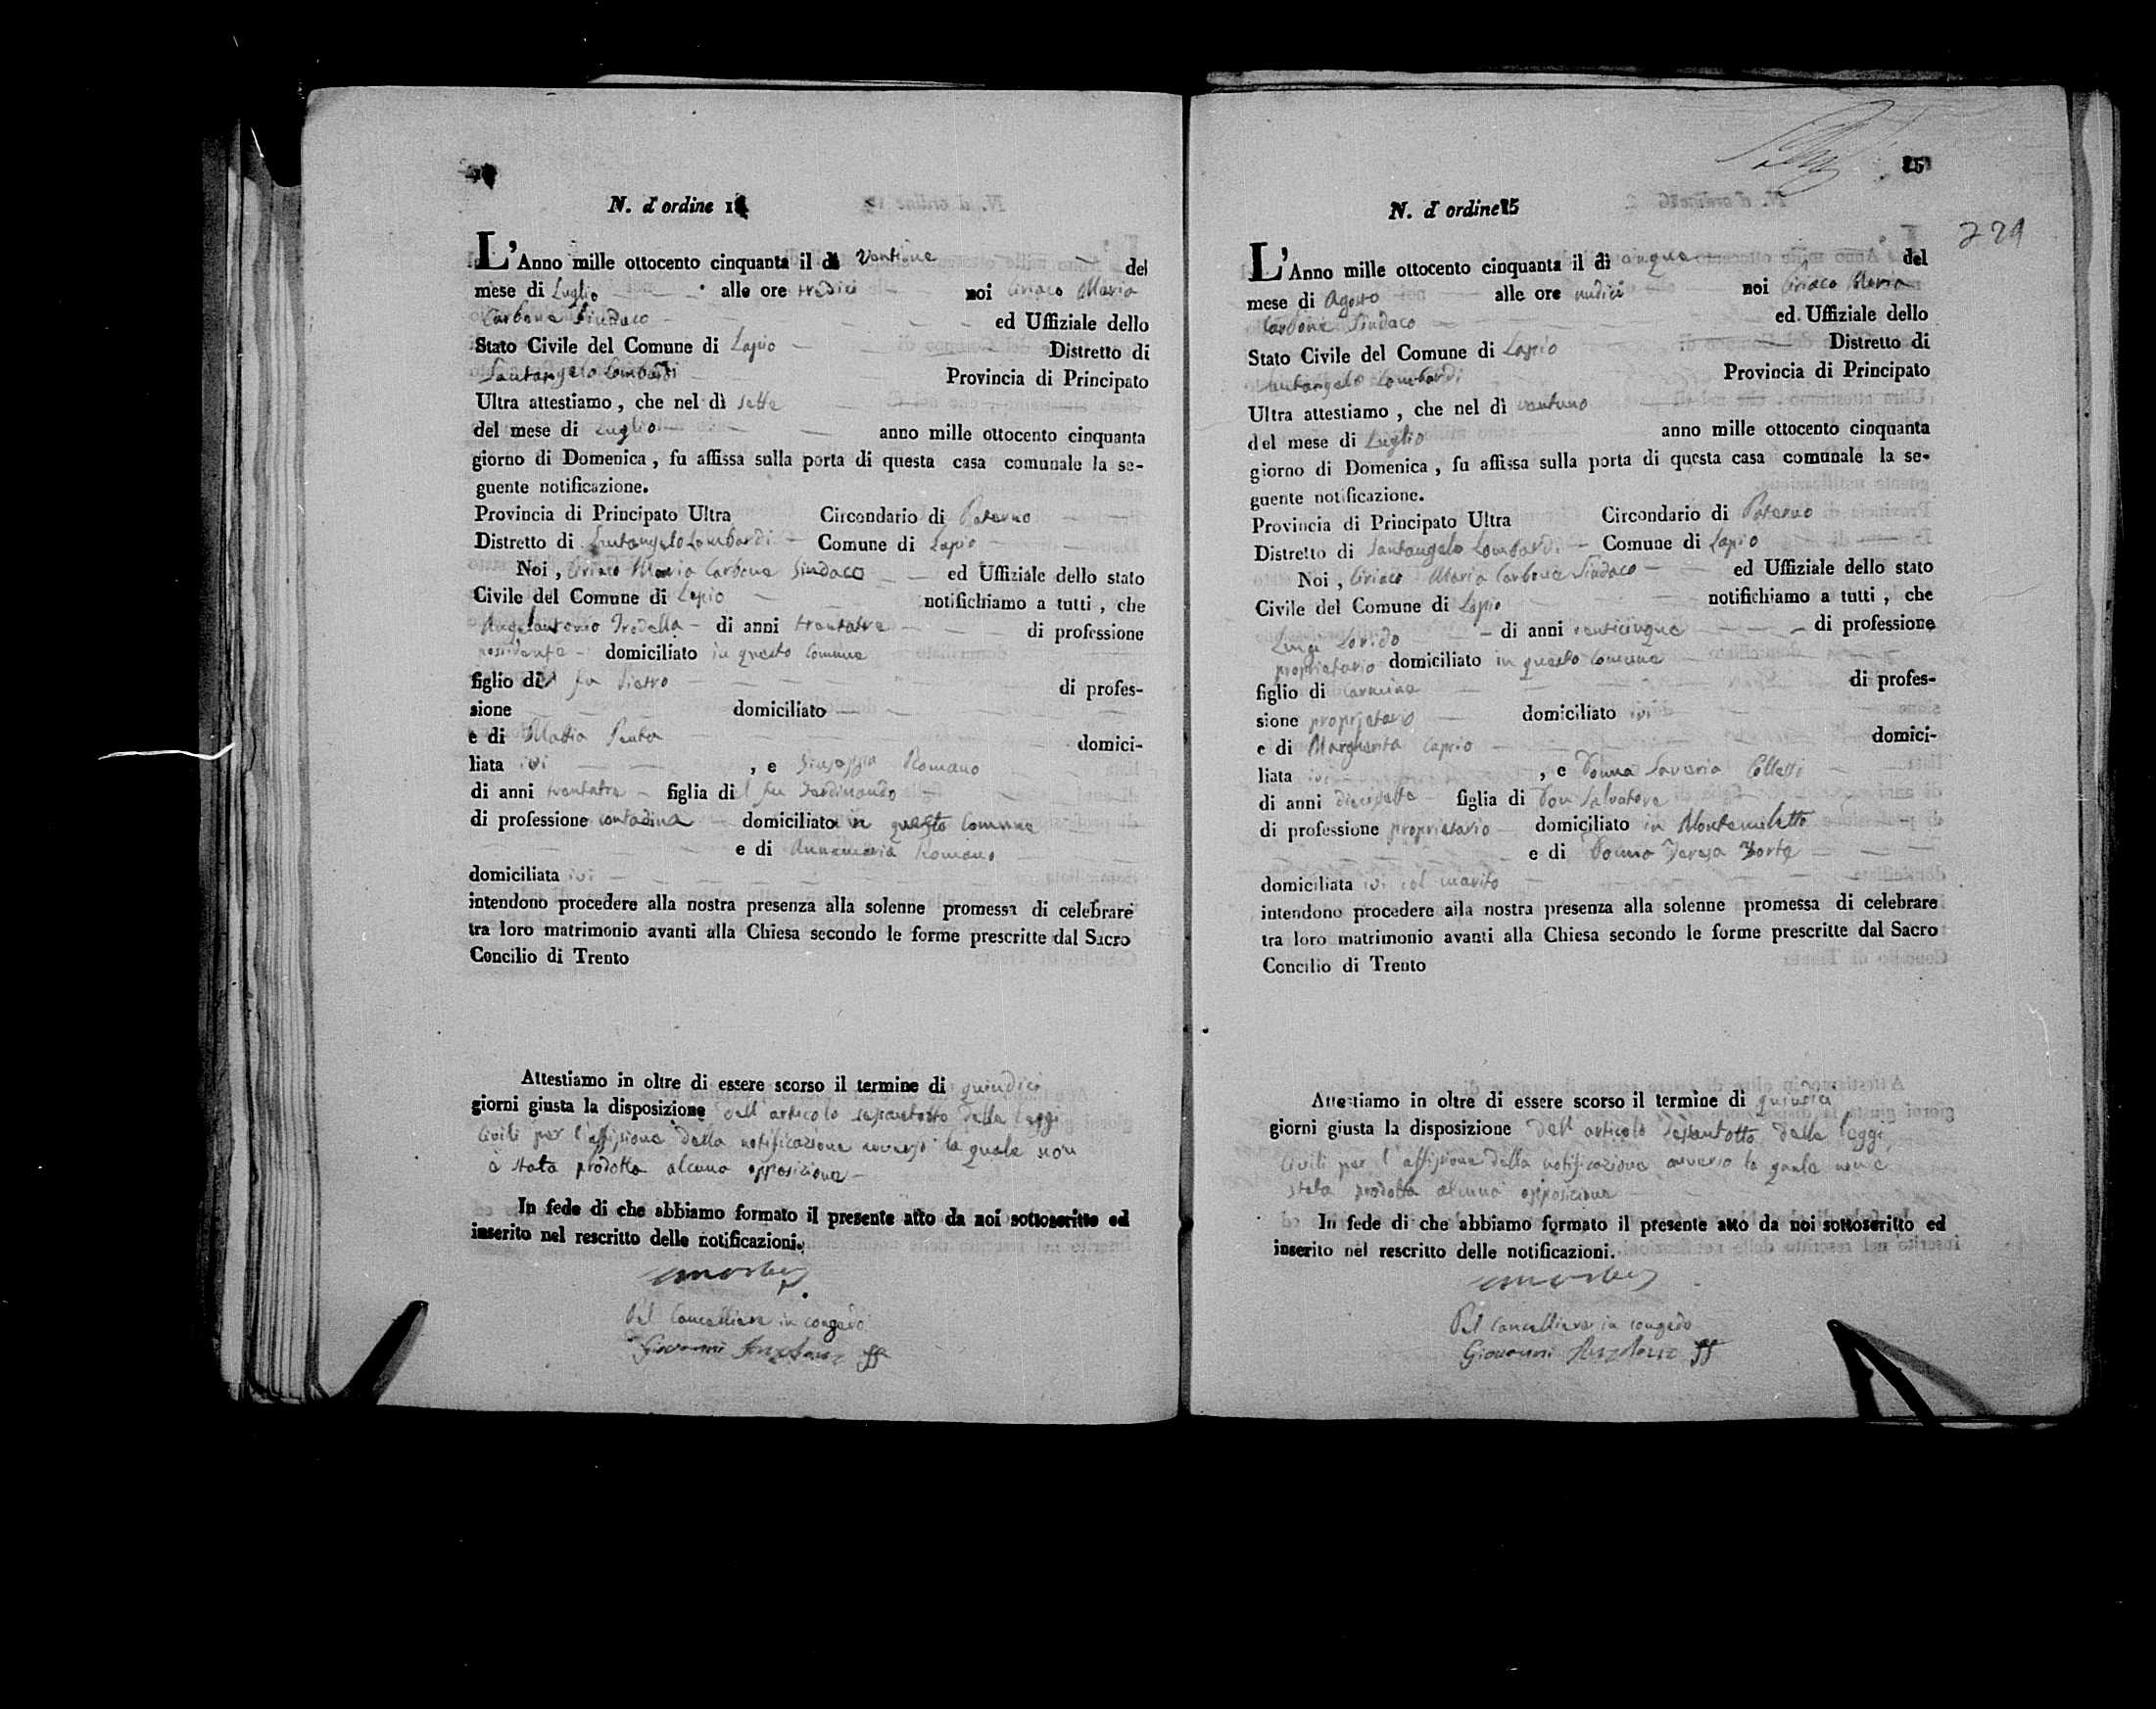 N. d'ordine 1
L'Anno mille ottocento cinquanta il dì Ventuno del
mese di Luglio alle ore tredici noi Ciriaco Maria
Carbone Sindaco ed Uffiziale dello
Stato Civile del Comune di Lapio Distretto di
Santangelo Lombardi Provincia di Principato
Ultra attestiamo, che nel dì sette
del mese di Luglio anno mille ottocento cinquanta
giorno di Domenica, fu affissa sulla porta di questa casa comunale la se-
guente notificazione.
Provincia di Principato Ultra Circondario di Paterno
Distretto di Santangelo Lombardi Comune di Lapio
Noi, Ciriaco Maria Carbone Sindaco ed Uffiziale dello stato
Civile del Comune di Lapio notifichiamo a tutti, che
Angelantonio di anni trentatre di professione
possidente domiciliato in questo Comune
figlio del fu Pietro di profes-
sione domiciliato
e di Maria Penta domici-
liata ivi , e Giuseppa Romano
di anni trentatre figlia del fu Ferdinando
di professione contadina domiciliata in questo Comune
e di Annamaria Romano
domiciliata ivi
intendono procedere alla nostra presenza alla solenne promessa di celebrare
tra loro matrimonio avanti alla Chiesa secondo le forme prescritte dal Sacro
Concilio di Trento
Attestiamo in oltre di essere scorso il termine di quindici
giorni giusta la disposizione dell'articolo sessantotto delle leggi
Civili per l'affissione della notificazione avverso la quale non
è stata prodotta alcuna opposizione
In fede di che abbiamo formato il presente atto da noi sottoscritto ed
inserito nel rescritto delle notificazioni.
Pel Cancelliere in congedo
Giovanni
25
729
N. d'ordine 15
L'Anno mille ottocento cinquanta il dì cinque del
mese di Agosto alle ore undici noi Ciriaco Maria
Carbone Sindaco ed Uffiziale dello
Stato Civile del Comune di Lapio Distretto di
Santangelo Lombardi Provincia di Principato
Ultra attestiamo, che nel dì ventuno
del mese di Luglio anno mille ottocento cinquanta
giorno di Domenica, fu affissa sulla porta di questa casa comunale la se-
guente notificazione.
Provincia di Principato Ultra Circondario di Paterno
Distretto di Santangelo Lombardi Comune di Lapio
Noi, Ciriaco Maria Carbone Sindaco ed Uffiziale dello stato
Civile del Comune di Lapio notifichiamo a tutti, che
Luigi di anni venticinque di professione
proprietario domiciliato in questo Comune
figlio di Carmine di profes-
sione proprietario domiciliato ivi
e di Margherita Caprio domici-
liata ivi , e Donna Saveria Colletti
di anni diecisette figlia di Don Salvatore
di professione proprietario domiciliato in Montemiletto
e di Donna Teresa Forte
domiciliata ivi col marito
intendono procedere alla nostra presenza alla solenne promessa di celebrare
tra loro matrimonio avanti alla Chiesa secondo le forme prescritte dal Sacro
Concilio di Trento
Attestiamo in oltre di essere scorso il termine di quindici
giorni giusta la disposizione dell'articolo sessantotto delle leggi
Civili per l'affissione della notificazione avverso la quale non è
stata prodotta alcuna opposizione
In fede di che abbiamo formato il presente atto da noi sottoscritto ed
inserito nel rescritto delle notificazioni.
Pel Cancelliere in congedo
Giovanni